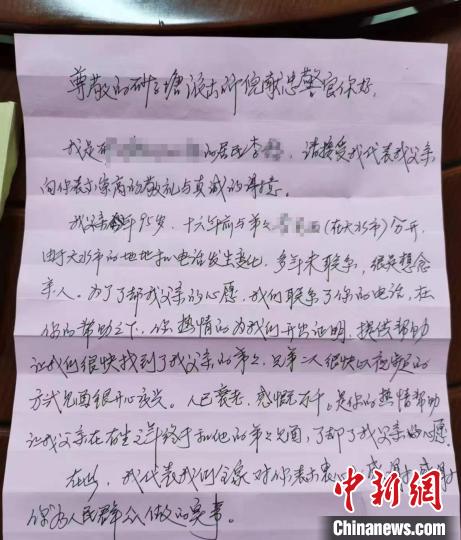 尊敬的砑石塘派出所倪献忠警官你好,
我是市 的居民李 ,请接受我代表我父亲
向你表示崇高的敬礼与真诚的谢意。
我父亲今年95岁,十六年前与弟弟 (在天水市)分开,
由于天水市的地址和电话发生变化,多年未联系,很是想念
亲人。为了了却我父亲的心愿,我们联系了你的电话,在
你的帮助之下,你热情的为我们开出证明,提供帮助
让我们很快找到了我父亲的弟弟,兄弟二人很快以视频的
方式见面很开心高兴。人已衰老,感慨万千。是你的热情帮助
让我父亲在有生之年终于和他的弟弟见面,了却了我父亲的心愿
在此,我代表我们全家对你表示衷心 感谢 感谢
你为人民群众做的实事。
中新网
Chinanews.com